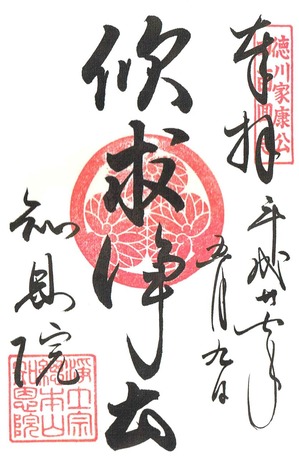 奉拝
徳川家康公
平成廿七年
五月九日
欣求浄土
知恩院
浄土宗
総本山
知恩院